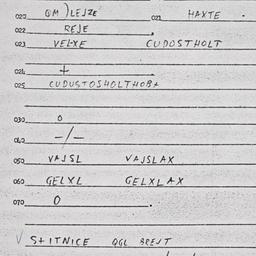 020 GM ) LEJZE 021 HAXTE .
022 REJE
023 VELXE CUDOSTHOLT
024 +
025 CUDUSTOSHOLTHOBA
030 0
040 -/-
050 VAJSL VAJSLAX
060 GELXL GELXLAX
070 0
V S+ITNICE QGL BREJT